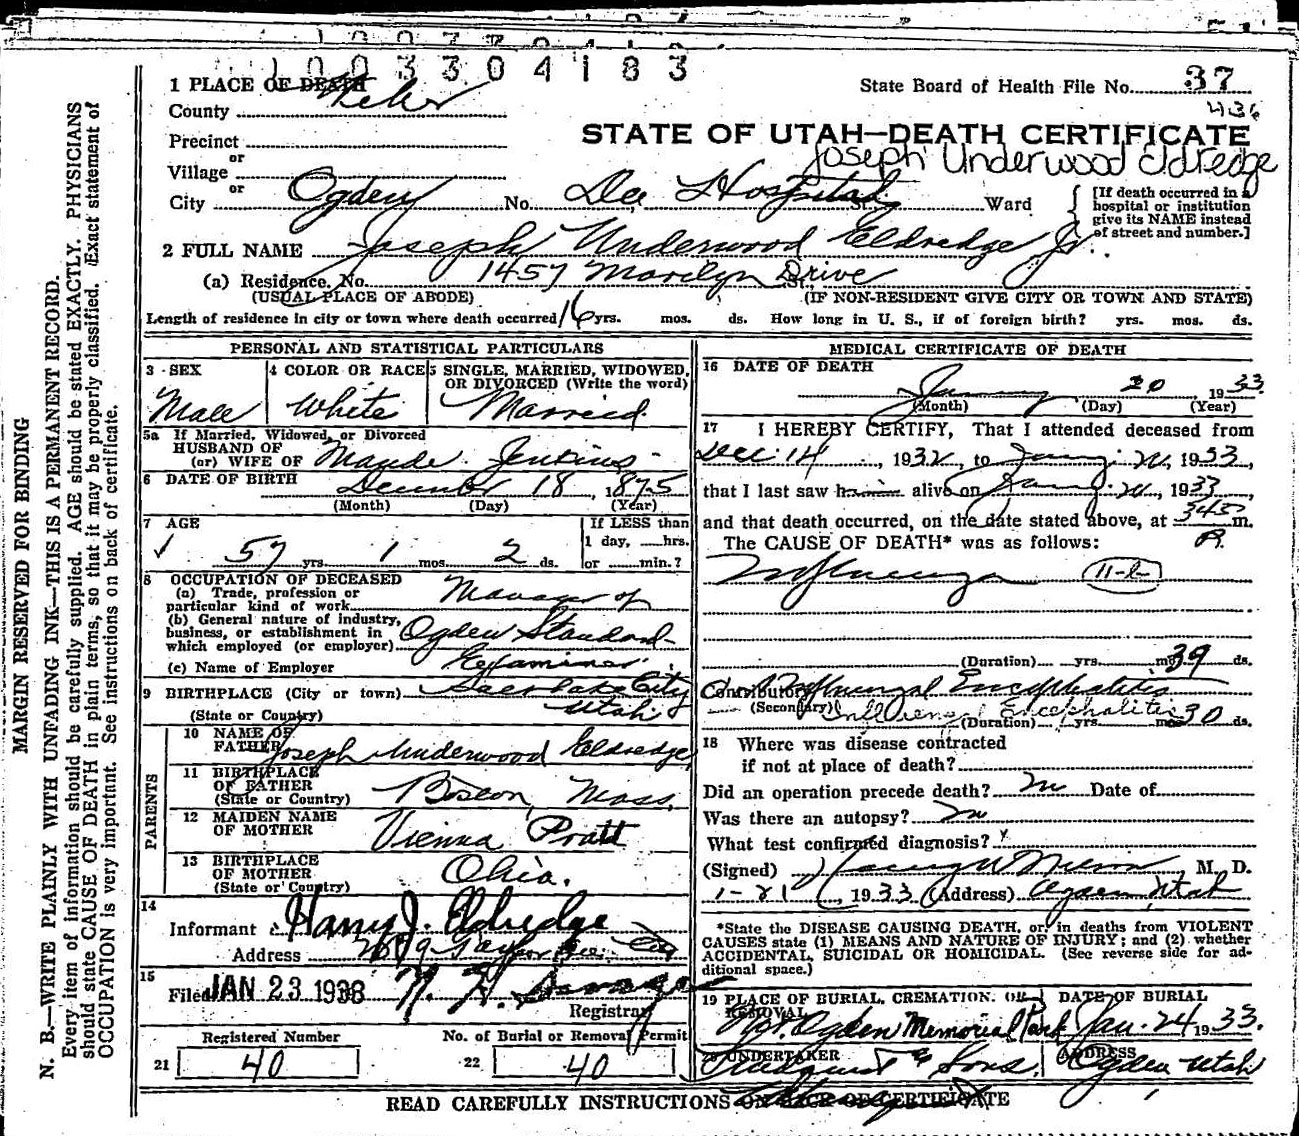 1003304183
1 PLACE OF DEATH
State Board of Health File No. 37
436
County Weber
STATE OF UTAH—DEATH CERTIFICATE
Joseph Underwood Eldredge
Precinct
or
Village
or
City Ogden No. Dee Hospital St. Ward
[If death occurred in a
hospital or institution
give its NAME instead
of street and number.]
2 FULL NAME Joseph Underwood Eldredge Jr.
(a) Residence. No. 1457 Marilyn Drive St.,
(USUAL PLACE OF ABODE) (IF NON-RESIDENT GIVE CITY OR TOWN AND STATE)
Length of residence in city or town where death occurred 16 yrs. mos. ds. How long in U. S., if of foreign birth? yrs. mos. ds.
PERSONAL AND STATISTICAL PARTICULARS
3 SEX
Male
4 COLOR OR RACE
White
5 SINGLE, MARRIED, WIDOWED,
OR DIVORCED (Write the word)
Married
5a If Married, Widowed, or Divorced
HUSBAND OF
(or) WIFE OF Maude Jenkins
6 DATE OF BIRTH December 18, 1875
(Month) (Day) (Year)
7 AGE
✓ 57 yrs. 1 mos. 2 ds.
If LESS than
1 day, hrs.
or min.?
8 OCCUPATION OF DECEASED
(a) Trade, profession or
particular kind of work Manager of
(b) General nature of industry,
business, or establishment in
which employed (or employer) Ogden Standard
(c) Name of Employer Examiner
9 BIRTHPLACE (City or town) Salt Lake City
(State or Country) Utah
PARENTS
10 NAME OF
FATHER Joseph Underwood Eldredge
11 BIRTHPLACE
OF FATHER
(State or Country) Boston, Mass.
12 MAIDEN NAME
OF MOTHER Vienna Pratt
13 BIRTHPLACE
OF MOTHER
(State or Country) Ohio.
14
Informant Harry J. Eldredge
Address 2679 Taylor Ave. City
15
Filed JAN 23 1933
Registrar
Registered Number
21 40
No. of Burial or Removal Permit
22 40
MEDICAL CERTIFICATE OF DEATH
16 DATE OF DEATH
January 20 1933
(Month) (Day) (Year)
17 I HEREBY CERTIFY, That I attended deceased from
Dec. 14, 1932, to 1933,
that I last saw alive on 1933,
and that death occurred, on the date stated above, at 345 m.
The CAUSE OF DEATH* was as follows: P.
Influenza 11-b
(Duration) yrs. mos. 39 ds.
Contributory Influenzal Encephalitis
(Secondary) Influenzal Encephalitis
(Duration) yrs. mos. 30 ds.
18 Where was disease contracted
if not at place of death?
Did an operation precede death? no Date of
Was there an autopsy? no
What test confirmed diagnosis?
(Signed) M. D.
1-21, 1933 (Address) Ogden, Utah
*State the DISEASE CAUSING DEATH, or, in deaths from VIOLENT
CAUSES state (1) MEANS AND NATURE OF INJURY; and (2) whether
ACCIDENTAL, SUICIDAL OR HOMICIDAL. (See reverse side for ad-
ditional space.)
19 PLACE OF BURIAL, CREMATION, OR
REMOVAL
Mt. Ogden Memorial Park
DATE OF BURIAL
Jan. 24 1933.
20 UNDERTAKER
& Sons.
ADDRESS
Ogden Utah
READ CAREFULLY INSTRUCTIONS ON BACK OF CERTIFICATE
MARGIN RESERVED FOR BINDING
N. B.—WRITE PLAINLY WITH UNFADING INK—THIS IS A PERMANENT RECORD.
Every item of information should be carefully supplied. AGE should be stated EXACTLY. PHYSICIANS
should state CAUSE OF DEATH in plain terms, so that it may be properly classified. Exact statement of
OCCUPATION is very important. See instructions on back of certificate.